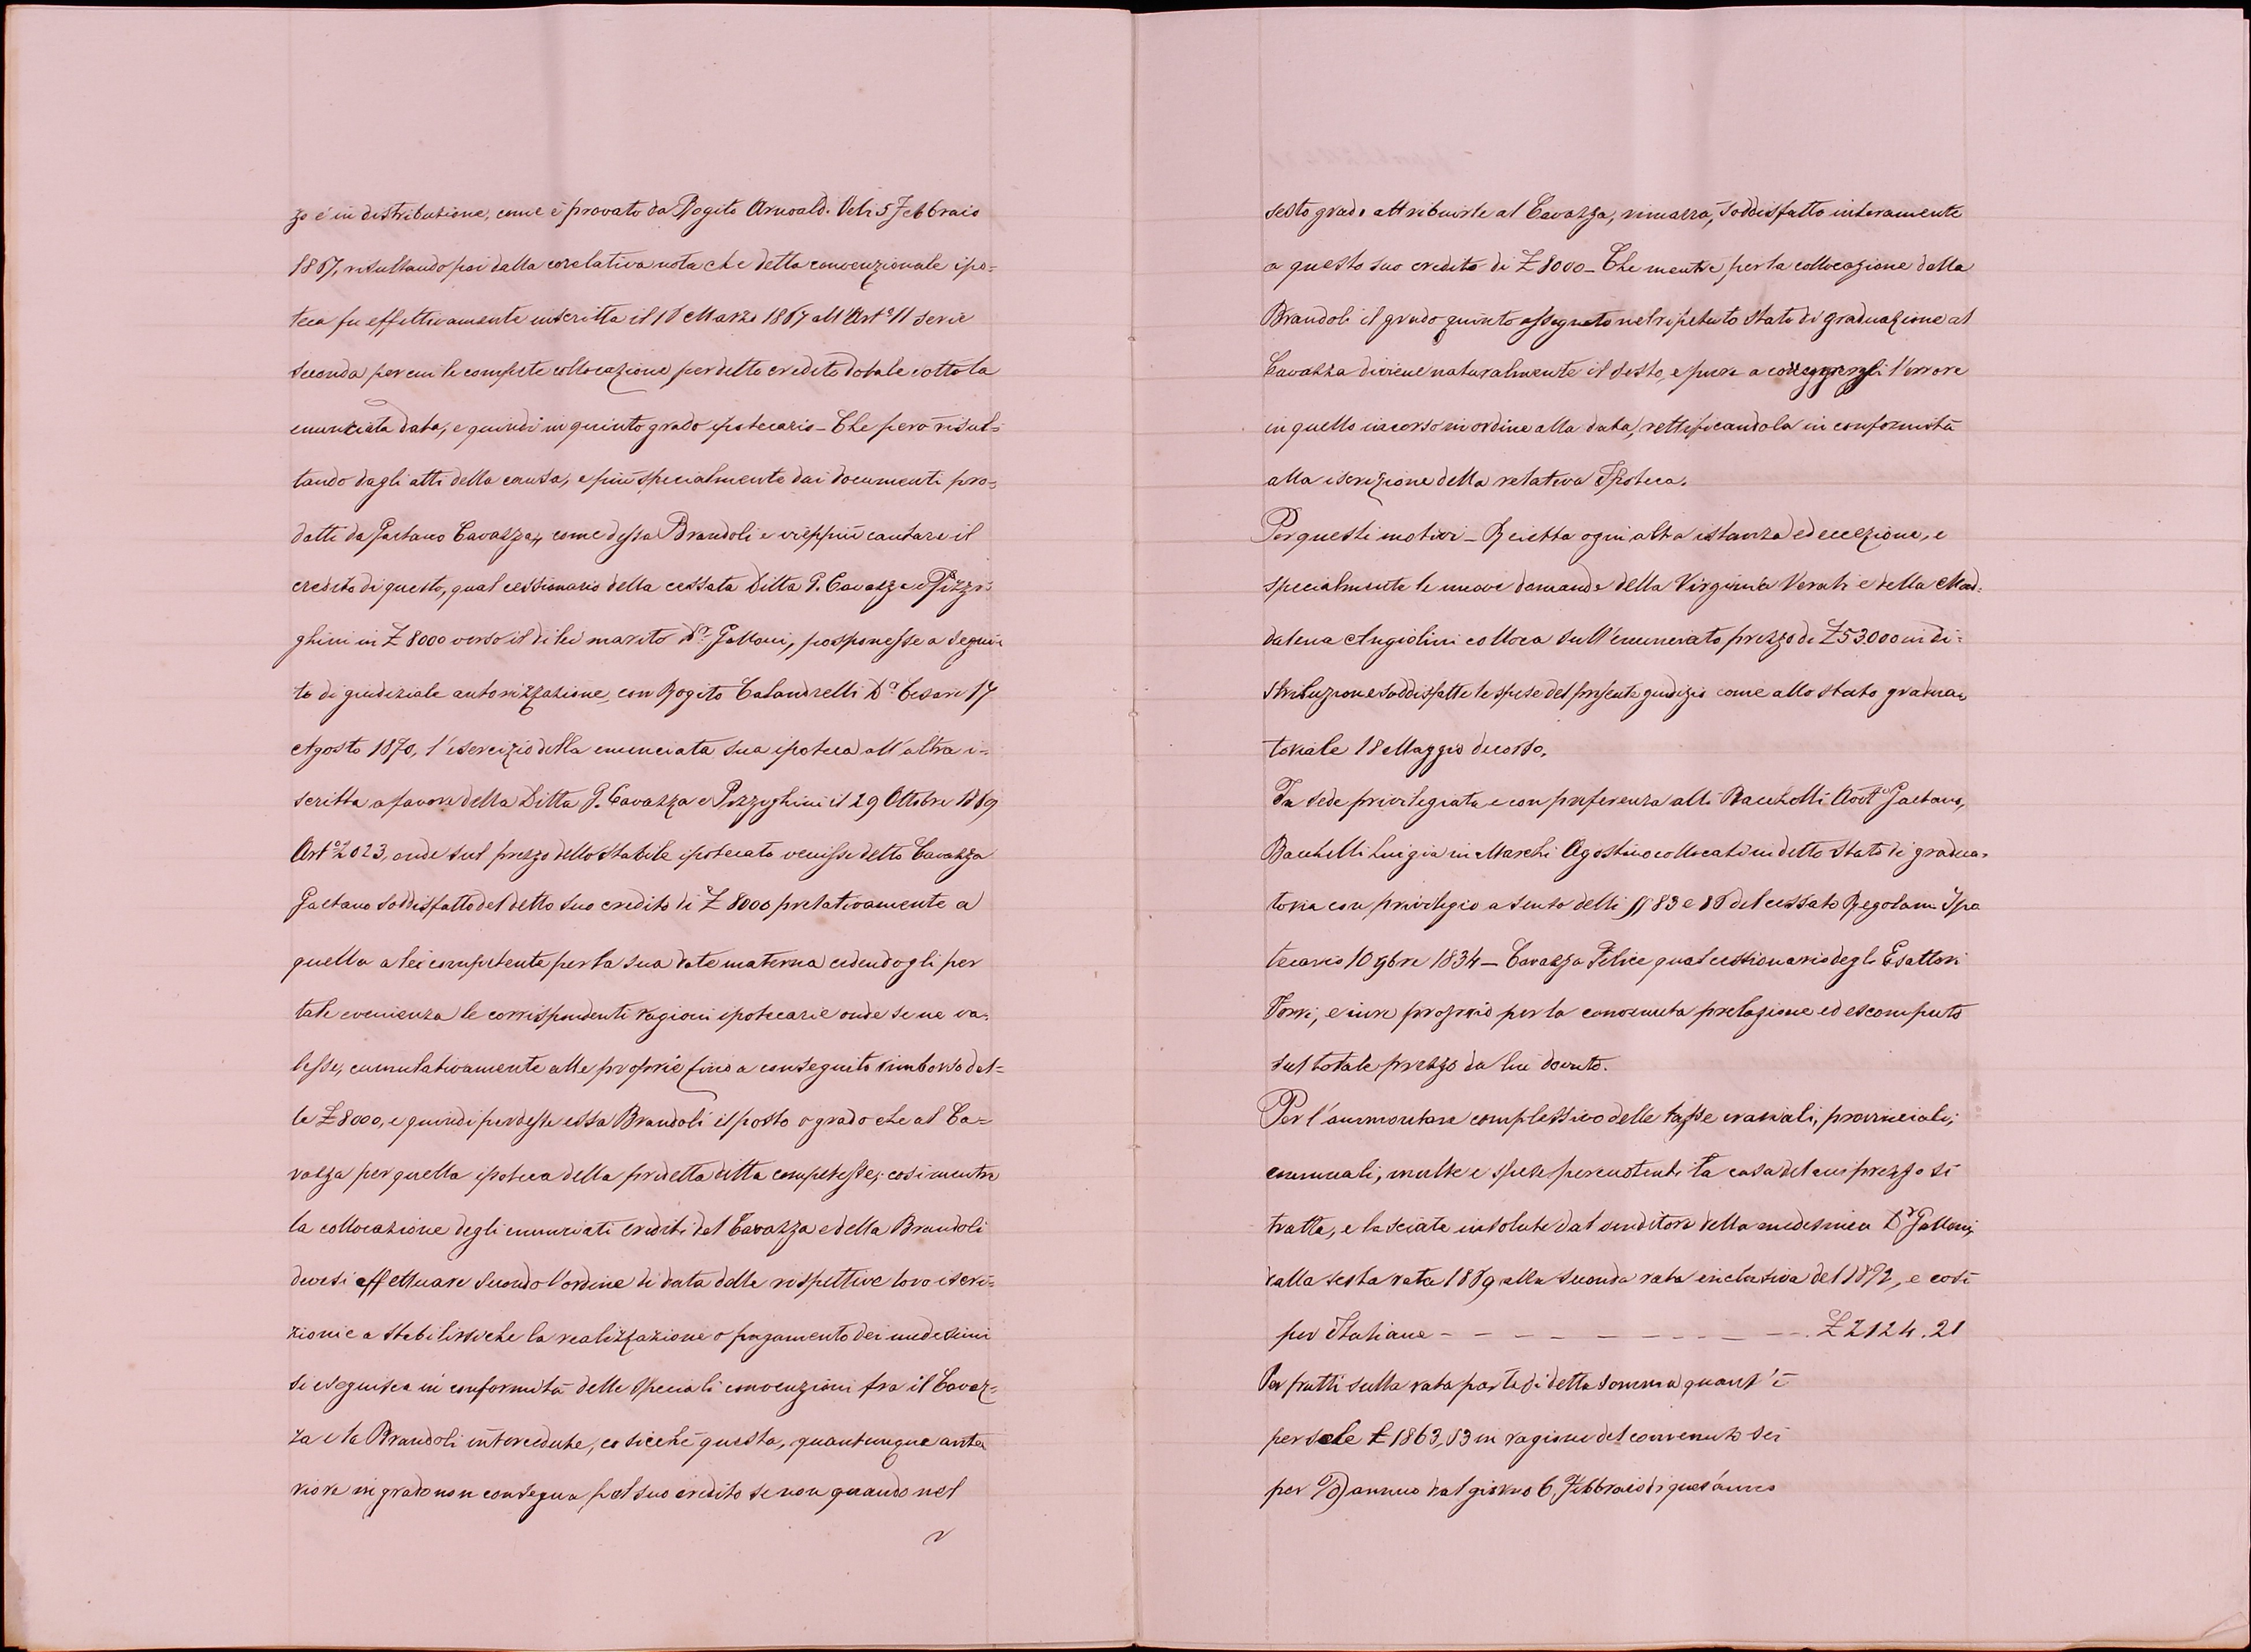 zo è in distribuzione, come è provato da Rogito Arnoald. Veli 5 Febbraio
1867, risultando poi dalla corelativa nota che detta convenzionale ipo=
teca fu effettivamente inscritta il 18 Marzo 1867 all'Art.° 11 serie
seconda per cui le compete collocazione per detto credito dotale sotto la
enunciata data, e quindi in quinto grado ipotecario - Che però risul=
tando dagli atti della causa, e più specialmente dai documenti pro=
dotti da Gaetano Cavazza, come dessa Brandoli a vieppiù cautare il
credito di questo, qual cessionario della cessata Ditta G. Cavazza e Pizzi=
ghini in £ 8000 verso il di lei marito Dr. Galloni, posponesse a segui=
to di giudiziale autorizzazione, con Rogito Calandrelli Dr. Cesare 17
Agosto 1870, l'esercizio della enunciata sua ipoteca all'altra i=
scritta a favore della Ditta G. Cavazza e Pizzighini il 29 Ottobre 1869
Art.° 2023, onde sul prezzo dello stabile ipotecato venisse detto Cavazza
Gaetano soddisfatto del detto suo credito di £ 8000 prelativamente a
quello a lei competente per la sua dote materna cedendogli per
tale evenienza le corrispondenti ragioni ipotecarie onde se ne va=
lesse, cumulativamente alle proprie fino a conseguito rimborso del=
le £ 8000, e quindi perdesse essa Brandoli il posto o grado che al Ca=
vazza per quella ipoteca della predetta ditta competesse; così mentre
la collocazione degli enunciati crediti del Cavazza e della Brandoli
devesi effettuare secondo l'ordine di data delle rispettive loro iscri=
zioni è a stabilirsi che la realizzazione o pagamento dei medesimi
si eseguisca in conformità delle speciali convenzioni fra il Cavaz=
za e la Brandoli intercedute, cosicchè questa, quantunque ante
riore in grado non consegua pel suo credito se non quando nel
sesto grado attribuirle al Cavazza, rimarrà, soddisfatto interamente
a questo suo credito di £ 8000 - Che mentre per la collocazione della
Brandoli il grado quinto assegnato nel ripetuto stato di graduazione al
Cavazza diviene naturalmente il sesto, e pure a correggersi l'errore
in quello incorso in ordine alla data, rettificandola in conformità
alla iscrizione della relativa Ipoteca.
Per questi motivi - Reietta ogni altra istanza ed eccezione, e
specialmente le nuove domande della Virginia Verati e della Mad=
dalena Angiolini colloca sull'enunciato prezzo di £ 53000 in di=
stribuzione soddisfatte le spese del presente giudizio come allo stato gradua=
toriale 18 Maggio decorso.
In sede privilegiata e con preferenza alli Bacchelli Avv.t° Gaetano,
Bachelli Luigia in Marchi Agostino collocati in detto stato di gradua=
toria con privilegio a senso delli §§ 83 e 86 del cessato Regolam. Ipo
tecario 10 9bre 1834 - Cavazza Felice qual cessionario degli Esattori
Torri, e iure proprio per la convenuta prelazione ed escomputo
sul totale prezzo da lui dovuto.
Per l'ammontare complessivo delle tasse erariali, provinciali,
comunali, multe e spese percuotenti la casa del cui prezzo si
tratta, e lasciate insolute dal venditore della medesima Dr. Galloni,
dalla sesta rata 1869 alla seconda rata inclusiva del 1872, e così
per Italiane - - - - - - - - - - £ 2124.21
Per frutti sulla rata parte di detta somma quant'è
per sole £ 1863,53 in ragione del convenuto sei
per % annuo dal giorno 6 Febbraio di quest'anno